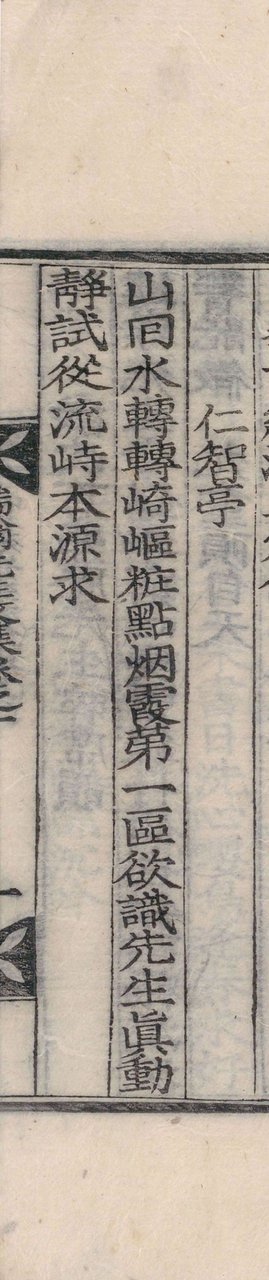 仁智亭
山回水轉轉崎嶇粧點烟霞苐一區欲識先生眞動
靜試從流峙本源求